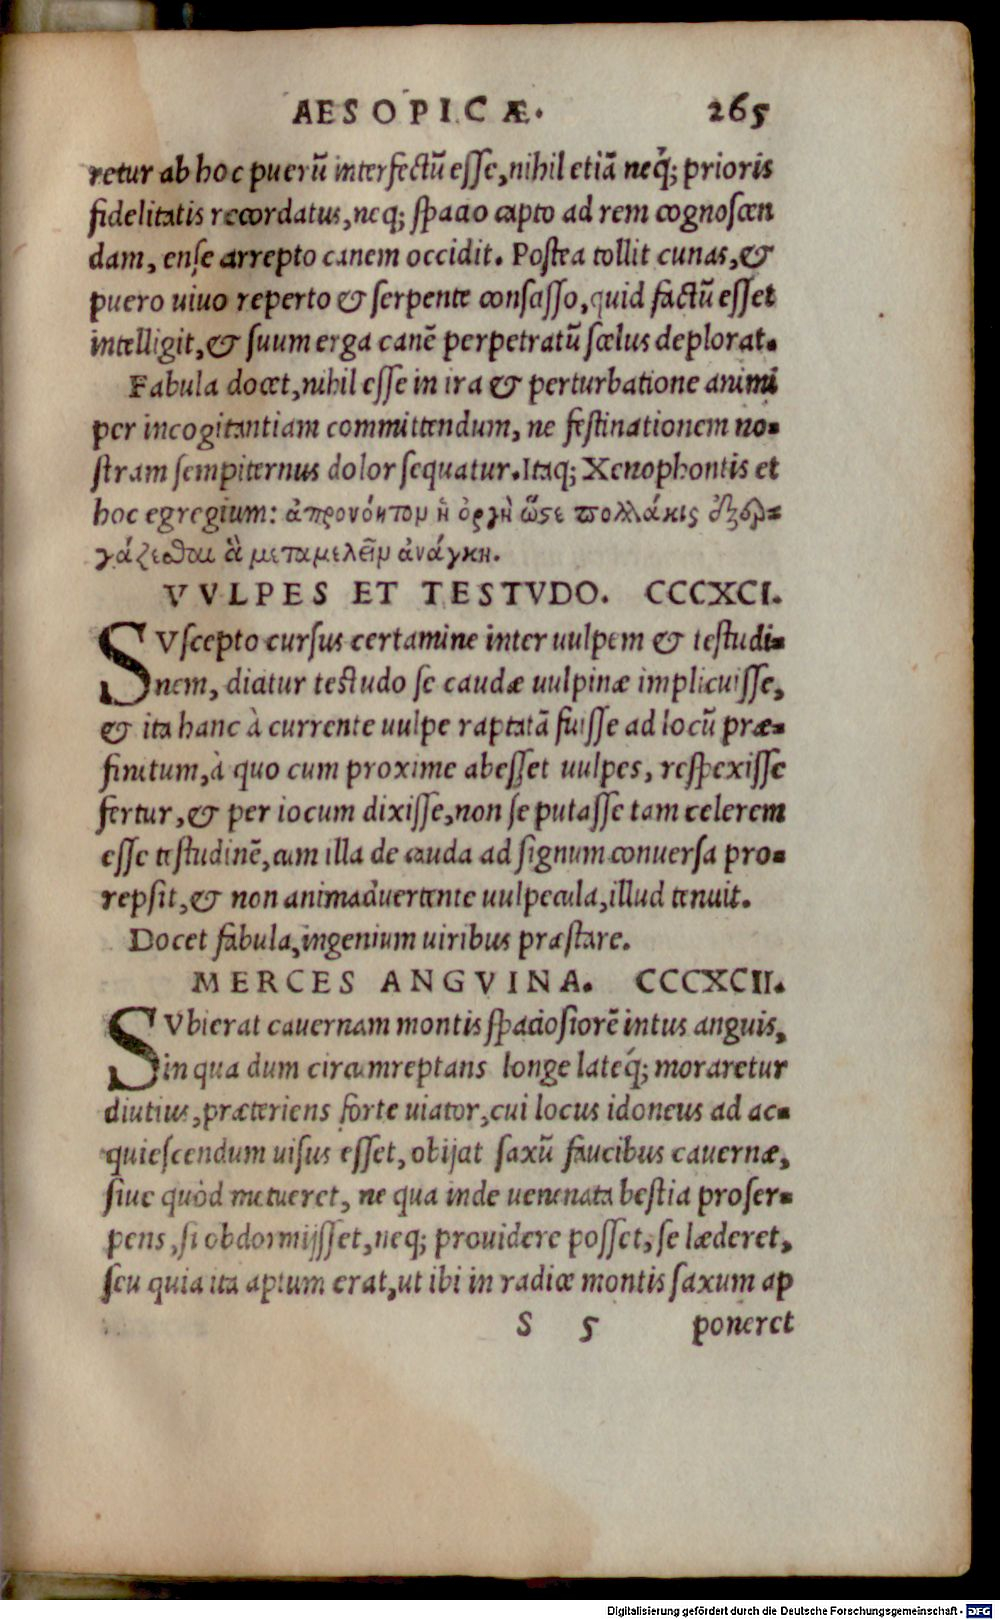 AESOPICÆ. 265
retur ab hoc puerũ interfectũ esse, nihil etiã neq́; prioris
fidelitatis recordatus, neq; spacio capto ad rem cognoscen
dam, ense arrepto canem occidit. Postea tollit cunas, &
puero uiuo reperto & serpente consasso, quid factũ esset
intelligit, & suum erga canẽ perpetratũ scelus deplorat.
Fabula docet, nihil esse in ira & perturbatione animi
per incogitantiam committendum, ne festinationem no-
stram sempiternus dolor sequatur. Itaq; Xenophontis et
hoc egregium: ἀπρονόητον ἡ ὀργὴ ὥστε πολλάκις ἐξερ-
γάζεσθαι ἃ μεταμελεῖν ἀνάγκη.
VVLPES ET TESTVDO. CCCXCI.
SVscepto cursus certamine inter uulpem & testudi-
nem, dicitur testudo se caudæ uulpinæ implicuisse,
& ita hanc à currente uulpe raptatã fuisse ad locũ præ-
finitum, à quo cum proxime abesset uulpes, respexisse
fertur, & per iocum dixisse, non se putasse tam celerem
esse testudinẽ, cum illa de cauda ad signum conuersa pro-
repsit, & non animaduertente uulpecula, illud tenuit.
Docet fabula, ingenium uiribus præstare.
MERCES ANGVINA. CCCXCII.
SVbierat cauernam montis spaciosiorẽ intus anguis,
in qua dum circumreptans longe lateq́; moraretur
diutius, præteriens forte uiator, cui locus idoneus ad ac-
quiescendum uisus esset, obijcit saxũ faucibus cauernæ,
siue quòd metueret, ne qua inde uenenata bestia proser-
pens, si obdormijsset, neq; prouidere posset, se læderet,
seu quia ita aptum erat, ut ibi in radice montis saxum ap
S 5 poneret
Digitalisierung gefördert durch die Deutsche Forschungsgemeinschaft - DFG